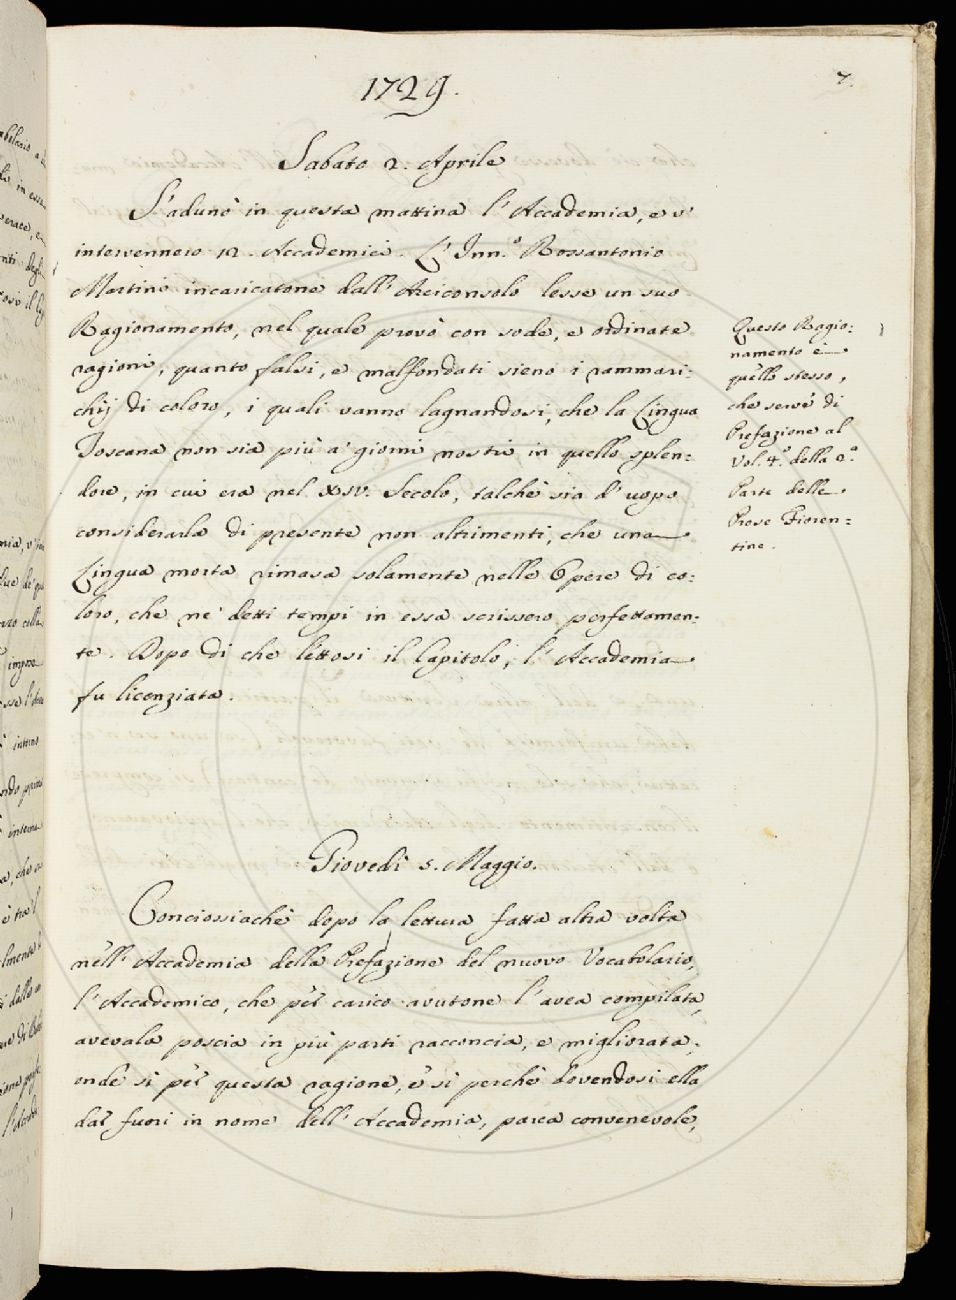 1729.
7.
Sabato 2. Aprile
S'adunò in questa mattina l'Accademia, e v'
intervennero 12. Accademici. L'Inn.º Rossantonio
Martini incaricatone dall'Arciconsolo lesse un suo
Ragionamento, nel quale provò con sode, e ordinate
ragioni, quanto falsi, e malfondati sieno i rammari=
chij di coloro, i quali vanno lagnandosi, che la Lingua
Toscana non sia più a' giorni nostri in quello splen=
dore, in cui era nel XIV. Secolo, talchè sia d'uopo
considerarla di presente non altrimenti, che una
Lingua morta rimasa solamente nelle Opere di co=
loro, che ne' detti tempi in essa scrissero perfettamen=
te. Dopo di che lettosi il Capitolo, l'Accademia
fu licenziata.
Questo Ragio=
namento è
quello stesso,
che serve di
Prefazione al
Vol. 4.º della 2.ª
Parte delle
Prose Fioren=
tine.
Giovedì 5. Maggio.
Conciossiachè dopo la lettura fatta altra volta
nell'Accademia della Prefazione del nuovo Vocabolario,
l'Accademico, che per carico avutone l'avea compilata,
avevala poscia in più parti racconcia, e migliorata;
onde sì per questa ragione, e sì perchè dovendosi ella
dar fuori in nome dell'Accademia, parea convenevole,